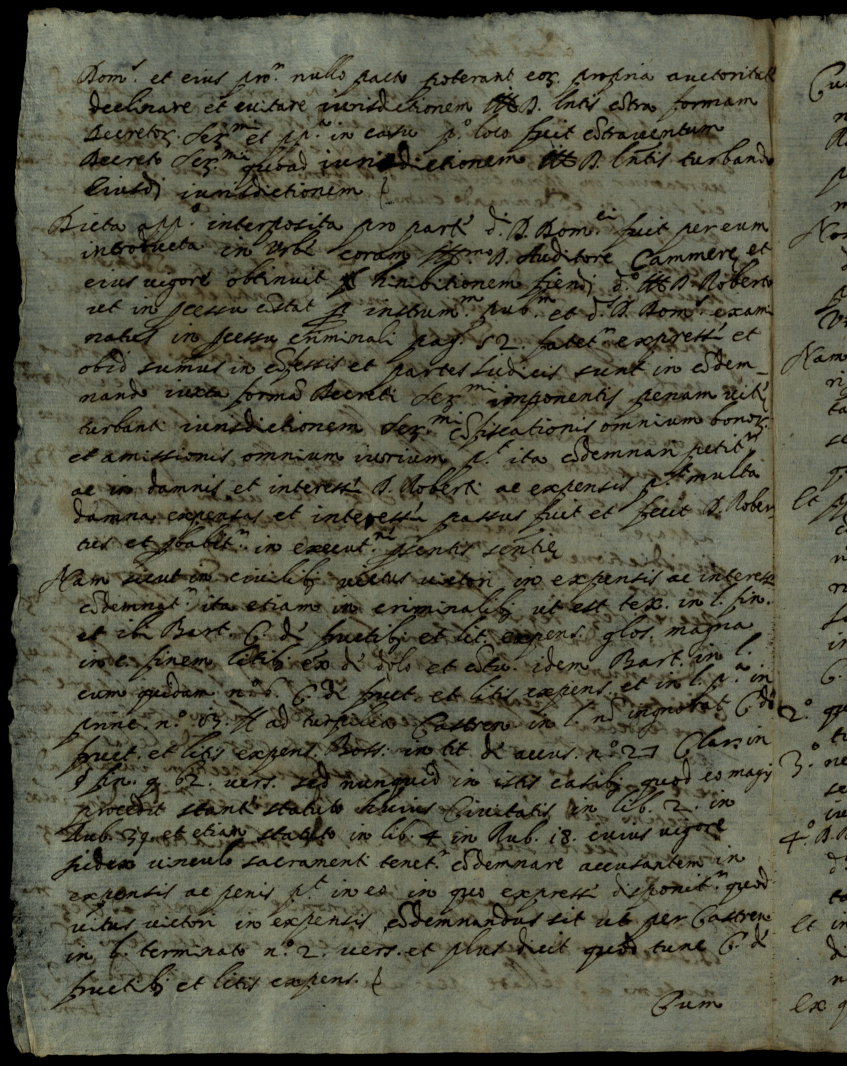 Dom.s et eius pro.r nullo pacto poterant eoz. propria auctoritate
declinare et euitare iurisdictionem Ill. D. lntis cōtra formam
Decretoz. Ser.mi et pp.a in casu p.o loco fuit cōtrauentum
Decreto Ser.mi quoad iurisdictionem Ill. D. lntis turbando
Eiusdj iurisdictionem
Dicta app.o interposita pro parte d. D. Dom.ci fuit per eum
introducta in Vrbe coram Ill.mo D. Auditore Cammere et
eius uigore obtinuit inhibitionem fiendj d.o Ill. D. Roberto
ut in pcessu cōstat p instrum.m pub.m et d. D. Dom.s exami
natus in pcessu criminali pag. 52. fatet.r expresse et
obid sumus in cōfessis et partes Iudicis sunt in cōdem-
nando iuxta formā Decreti Ser.mi imponentis penam uite
turbanti iurisdictionem Ser.mi cōfiscationis omnium bonoz.
et amissionis omnium iurium p.t ita cōdemnari petit.r
ac in damnis et interesse D. Roberti ac expensis p.t multa
damna expensas et interesse passus fuit et fecit D. Rober-
tus et pbabit.r in execut.ne pntis sentie
Nam sicut in ciuilibj uictus uictori in expensis ac interesse
cōdemnat.r ita etiam in criminalibj ut est tex. in l. fin.
et ibi Bart. C. de fructibj et lit. expens. glos. magna
in c. finem litibj ex de dolo et cōtu. idem Bart. in l.
cum quedam n.o 6. C. de fruct. et litis expens. et in l. p.a in
prine. n.o 63. ff ad turpilia Castren in l. nō ingnorat C. de
fruct. et litis expens. Boss. in tit. de accus. n.o 27 Clar. in
§ fin. q. 62. vers. sed nunquid in istis casibj quod eo magis
procedit stante statuto huius Ciuitatis in lib. 2. in
Rub. 39 et etiam statuto in lib. 4 in Rub. 18. cuius uigore
iudex uinculo sacramenti tenet.r cōdemnare accusantem in
expensis ac penis p.t in eo in quo expresse disponit.r quod
uitus uictori in expensis cōdemnandus sit ut per Castren
in l. terminato n.o 2. vers. et plus dicit quod tunc C. de
fructibj et litis expens.
Cum